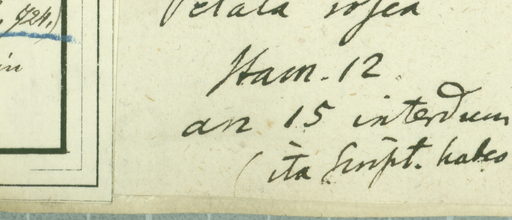 924.)
in
Petala rosea
Stam. 12
an 15 interdum
(ita script. habeo